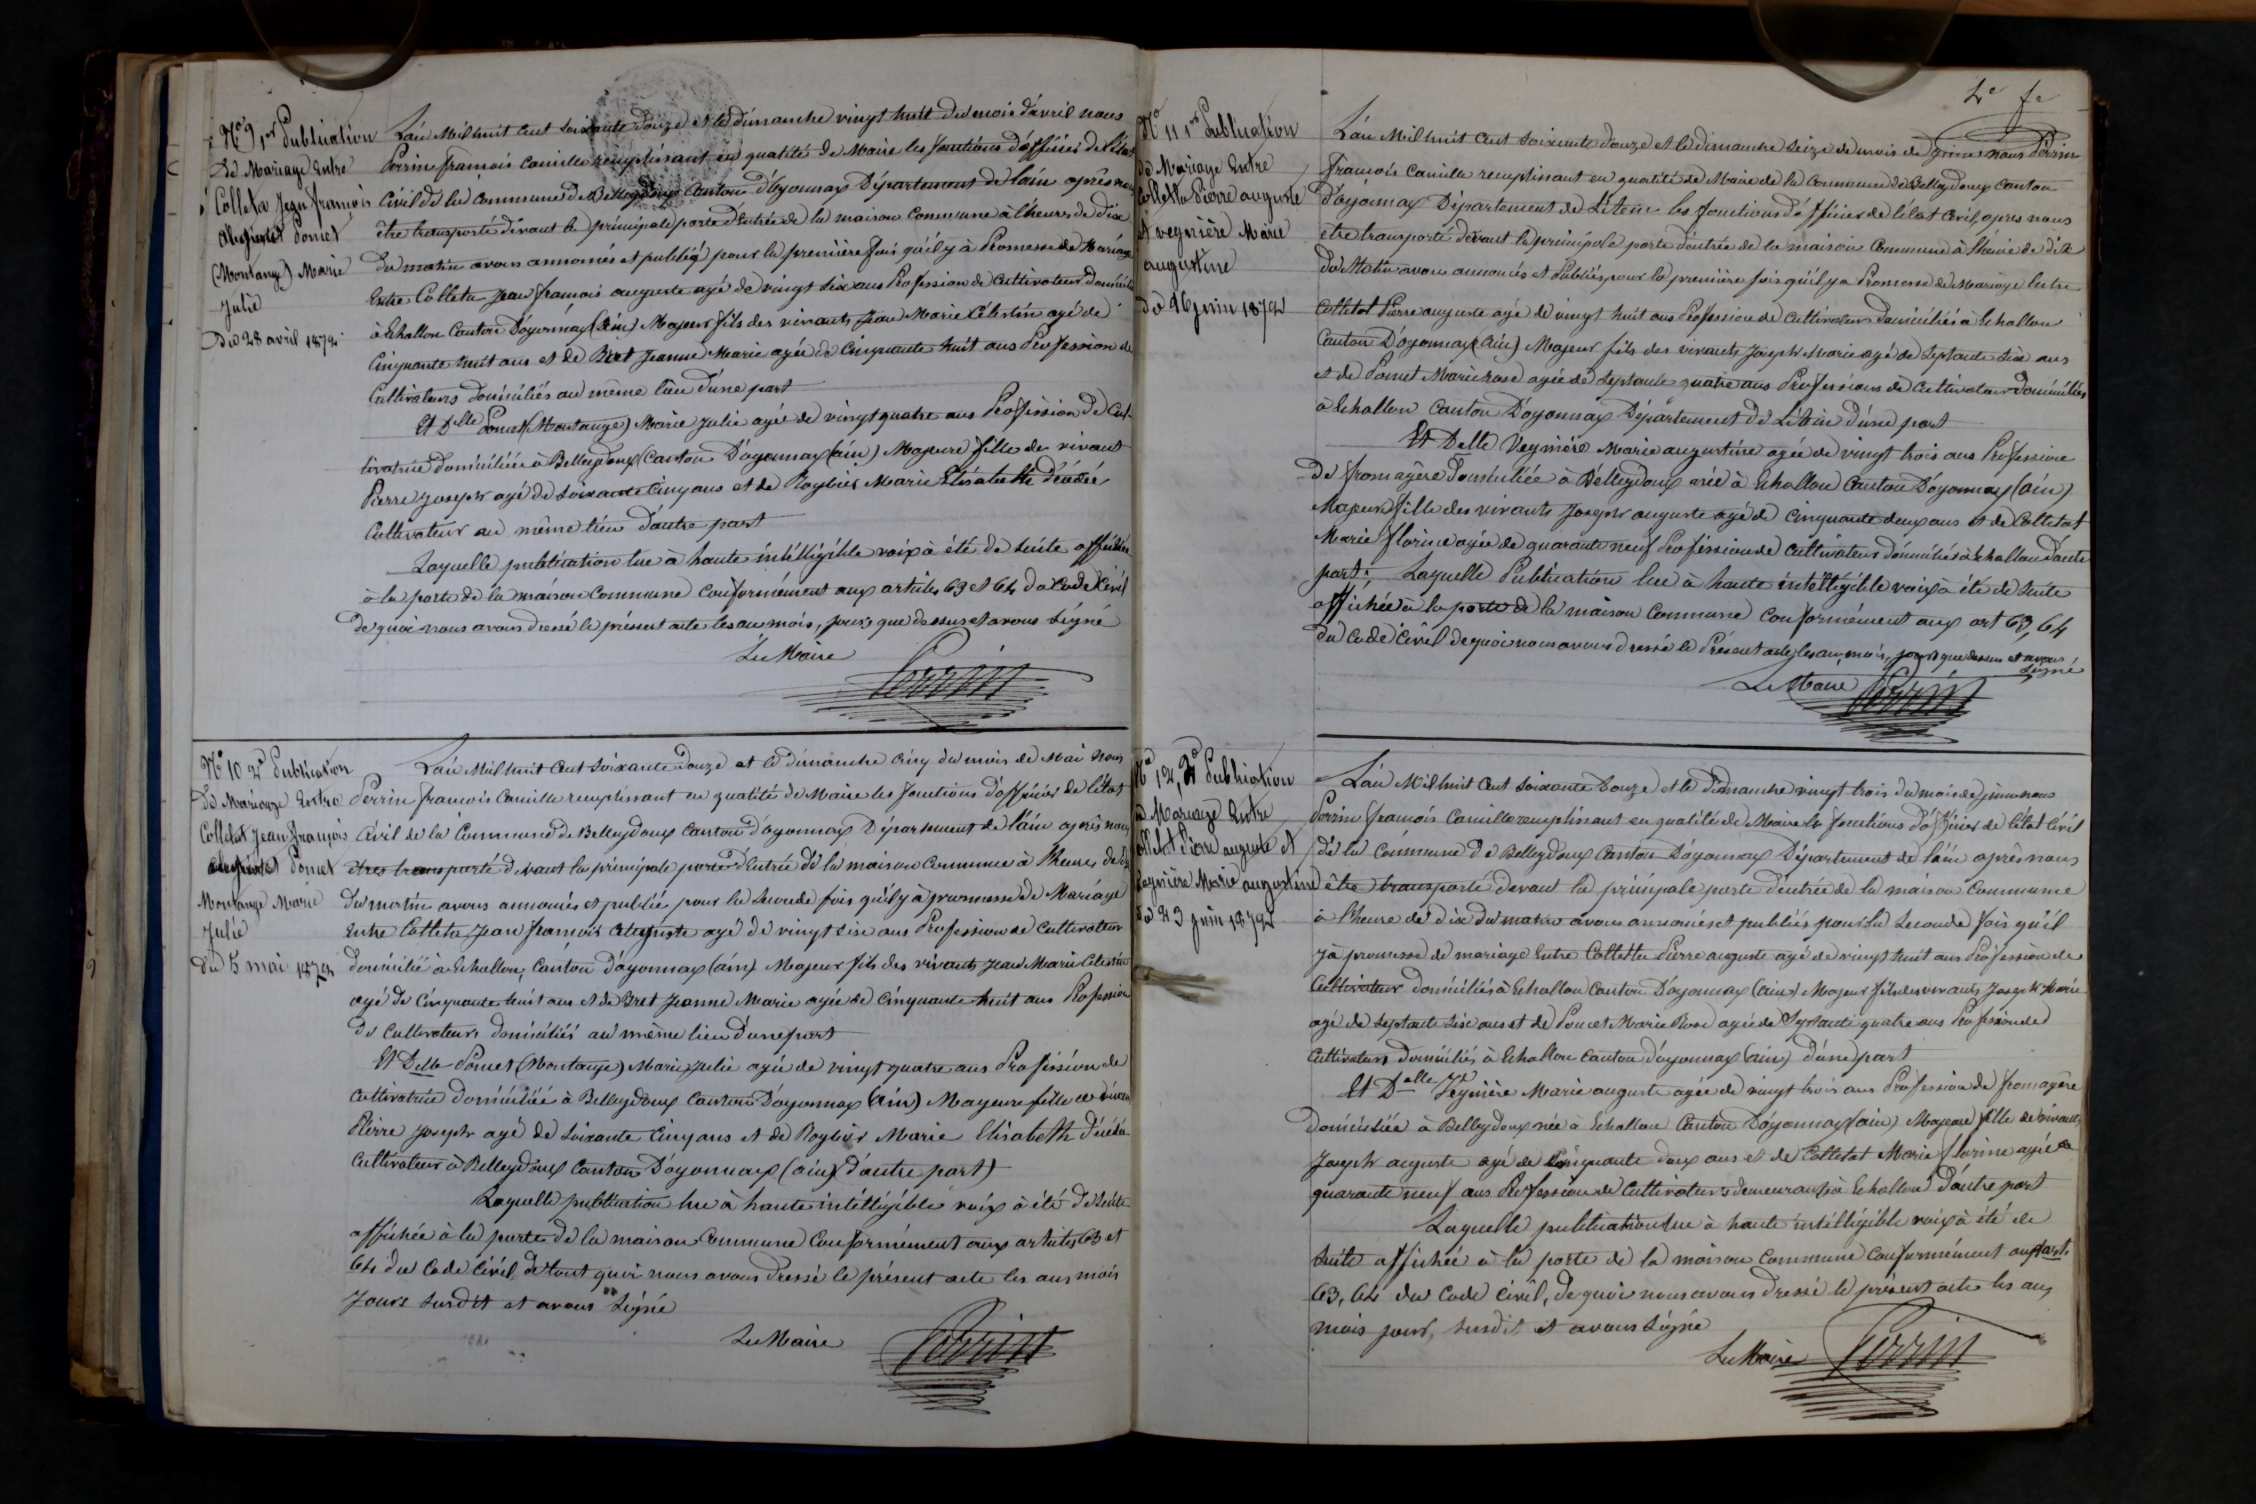 N° 9 1er Publication
De Mariage Entre
Colleta Jean françois
Auguste et Poncet
(Montange) Marie
Julie
Du 28 avril 1872
L'an Mil huit cent soixante douze et le dimanche vingt huit du mois d'avril nous
Perrin françois camille remplissant en qualité de Maire les fonctions d'officier de l'état
Civil de la Commune de Belleydoux Canton d'Oyonnax Département de l'ain après nous
être transporté devant la principale porte d'Entrée de la maison Commune à l'heure de dix
du matin avons annoncés et publié pour la première fois qu'il y à Promesse de Mariage
Entre Colleta Jean françois auguste agé de vingt six ans Profession de Cultivateur domicilié
à Echallon Canton D'oyonnax (Ain) Majeur fils des vivants Jean Marie Célestin agé de
Cinquante huit ans et de Bret Jeanne Marie agée de Cinquante huit ans Profession de
Cultivateurs domiciliés au même lieu d'une part
Et Delle Poncet (Montange) Marie Julie agé de vingt quatre ans Profission de Cul-
tivatrice domiciliée à Belleydoux (Canton D'oyonnax (ain) Majeure fille de vivant
Pierre Joseph agé de soixante cinq ans et de Roybier Marie Elisabeth décédée
Cultivateur au même lieu d'autre part
Laquelle publication lue à haute intélligible voix à été de suite affichée
à la porte de la maison Commune Conformément aux articles 63 et 64 du Code Civil
de quoi nous avons dressé le présent acte les an mois, jours que dessus et avons signé
Le Maire Perrin
N° 10 2e Publication
De Mariage Entre
Colletat Jean françois
Auguste et Poncet
Montange Marie
Julie
du 5 mai 1872
L'an Mil huit Cent Soixante Douze et le dimanche cinq du mois de Mai nous
Perrin françois Camille remplissant en qualité de Maire les fonctions d'officier de l'état
Civil de la Commune de Belleydoux Canton d'oyonnax Département de l'ain après nous
être transporté devant la principale porte d'Entrée de la maison Commune à l'heure de dix
du matin avons annoncés et publié pour la seconde fois qu'il y à promesse de Mariage
Entre Colleta Jean françois Auguste agé de vingt six ans Profession de Cultivateur
domicilié à Echallon, Canton d'oyonnax (ain) Majeur fils des vivants Jean Marie Célestin
agé de Cinquante huit ans et de Bret Jeanne Marie agée de Cinquante huit ans Profession
de Cultivateurs domiciliés au même lieu d'une part
Et Delle Poncet (Montange) Marie Julie agée de vingt quatre ans Profission de
Cultivatrice domiciliée à Belleydoux Canton D'oyonnax (ain) Majeure fille de vivant
Pierre Joseph agé de soixante Cinq ans et de Roybier Marie Elisabeth décédée
Cultivateur à Belleydoux Canton D'oyonnax (ain) d'autre part)
Laquelle publication lue à haute intélligible voix à été de suite
affichée à la porte de la maison Commune Conformément aux articles 63 et
64 du Code Civil, de tout quoi nous avons Dressé le présent acte les ans mois
Jours susdit et avons Signé
Le Maire Perrin
N° 11 1re Publication
de Mariage Entre
Colletta Pierre auguste
et vegnière Marie
augustine
du 16 juin 1872
L'an Mil huit Cent soixante douze et le dimanche seize du mois de juin nous Perrin
françois Camille remplissant en qualité de Maire de la Commune de Belleydoux Canton
d'oyonnax Département de L'Ain les fonctions d'officier de l'état civil, apres nous
etre transporté devant la principale porte d'entrée de la maison Commune à l'heure de dix
du Matin avons annoncés et Publiés pour la première fois qu'il y a Promesse de Mariage Entre
Colletat Pierre auguste agé de vingt huit ans Profession de Cultivateur Domiciliés à Echallon
Canton D'oyonnax (ain) Majeur fils des vivants Joseph Marie agé de Septante Six ans
et de Poncet Marie Rose agée de septante quatre ans Professions de Cultivateurs Domiciliés
à Echallon Canton D'oyonnax Département de L'Ain d'une part
Et Delle Vegnière Marie augustine agée de vingt trois ans Profession
De fromagère Domiciliée à Belleydoux née à Echallon Canton D'oyonnax (ain)
Majeure fille des vivants Joseph auguste agé de Cinquante deux ans et de Colletat
Marie florine agée de quarante neuf Profession de Cultivateur domiciliés à Echallon d'autre
part; Laquelle Publication lue à haute intelligible voix à été de Suite
affichée à la porte de la maison Commune Conformément aux art 63, 64
du Code Civil de quoi nous avons dressé le Présent acte, les an, mois, jours que dessus et avons
signé
Le Maire Perrin
N° 12, 2e Publication
de Mariage Entre
Colletat Pierre auguste et
Vegnière Marie augustine
du 23 Juin 1872
L'an Mil huit Cent soixante Douze et le dimanche vingt trois du mois de juin nous
Perrin françois Camille remplissant en qualité de Maire les fonctions d'officier de l'état Civil
de la Commune de Belleydoux Canton D'oyonnax Département de l'ain après nous
être transporté devant la principale porte d'entrée de la maison Commune
à l'heure de dix du matin avons annoncés et publiés pour la seconde fois qu'il
y à promesse de mariage Entre Colletta Pierre auguste agé de vingt huit ans Profession de
Cultivateur domiciliés à Echallon Canton D'oyonnax (ain) Majeur fils des vivants Joseph Marie
agé de septante Six ans et de Poncet Marie Rose agée de Septante quatre ans Profession de
Cultivateurs domiciliés à Echallon Canton d'oyonnax (ain) d'une part
Et Delle Vegnière Marie auguste agée de vingt trois ans Profession de fromagère
Domiciliée à Belleydoux née à Echallon Canton D'oyonnax (ain) Majeure fille de vivants
Joseph auguste agé de Cinquante deux ans et de Colletat Marie florine agée de
quarante neuf ans Profession de Cultivateurs demeurants à Echallon d'autre part
Laquelle publication lue à haute intélligible voix à été de
suite affichée à la porte de la maison Commune Conformément aux art.
63, 64 du Code Civil, De quoi nous avons Dressé le présent acte les an,
mois jours, susdit et avons Signé
Le Maire Perrin